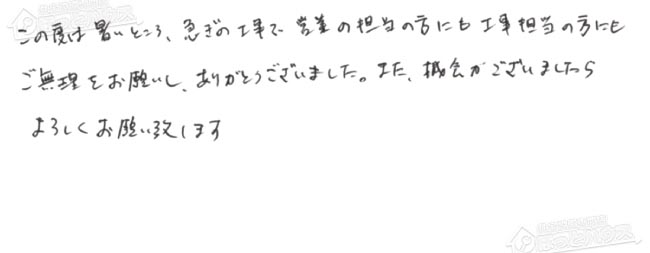 この度は暑いところ、急ぎの工事で営業の担当の方にも工事担当の方にも
ご無理をお願いし、ありがとうございました。また、機会がございましたら
よろしくお願い致します